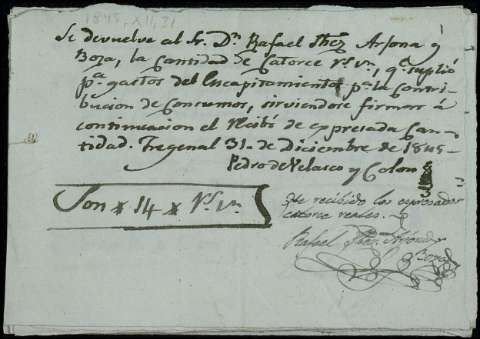 1845, XII, 31
Se devuelve al Sr. Dn. Rafael Shez Arjona y
Boza, la Cantidad de Catorce rs. vn., qe. suplió
pa. gastos del Encapitamiento pa. la Contri-
bucion de Consumos, sirviendose firmar á
continuacion el Recibo de expresada Can-
tidad. Fregenal 31. de Diciembre de 1845-
Pedro de Velasco y Colon
Son * 14 * rs. vn.
He recibido los expresados
catorce reales.
Rafael Shez Arjona
y Boza